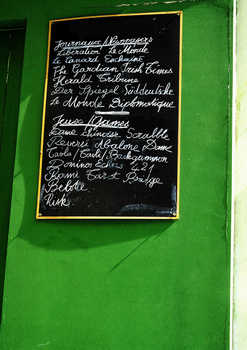 Journaux / Newspapers
Liberation Le Monde
Le Canard Enchainé
The Gardian Irish Times
Herald Tribune
Der Spiegel Süddeutshe
Le Monde Diplomatique
Jeux / Games
Dame Chinoise Scrabble
Reversi Abalone Dame
Backgammon
Dominos Echecs 421
Rami Tarot Bridge
Belotte
Risk.